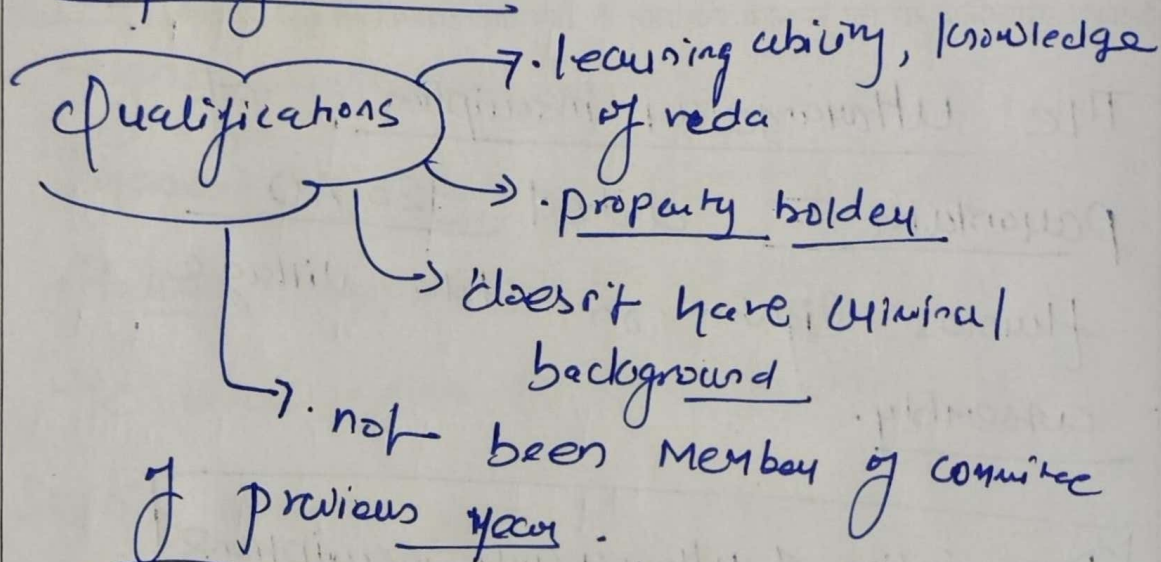 Qualifications
. learning ability, knowledge
of veda
. property holder
doesn't have criminal
background
. not been member of commitee
of previous year.